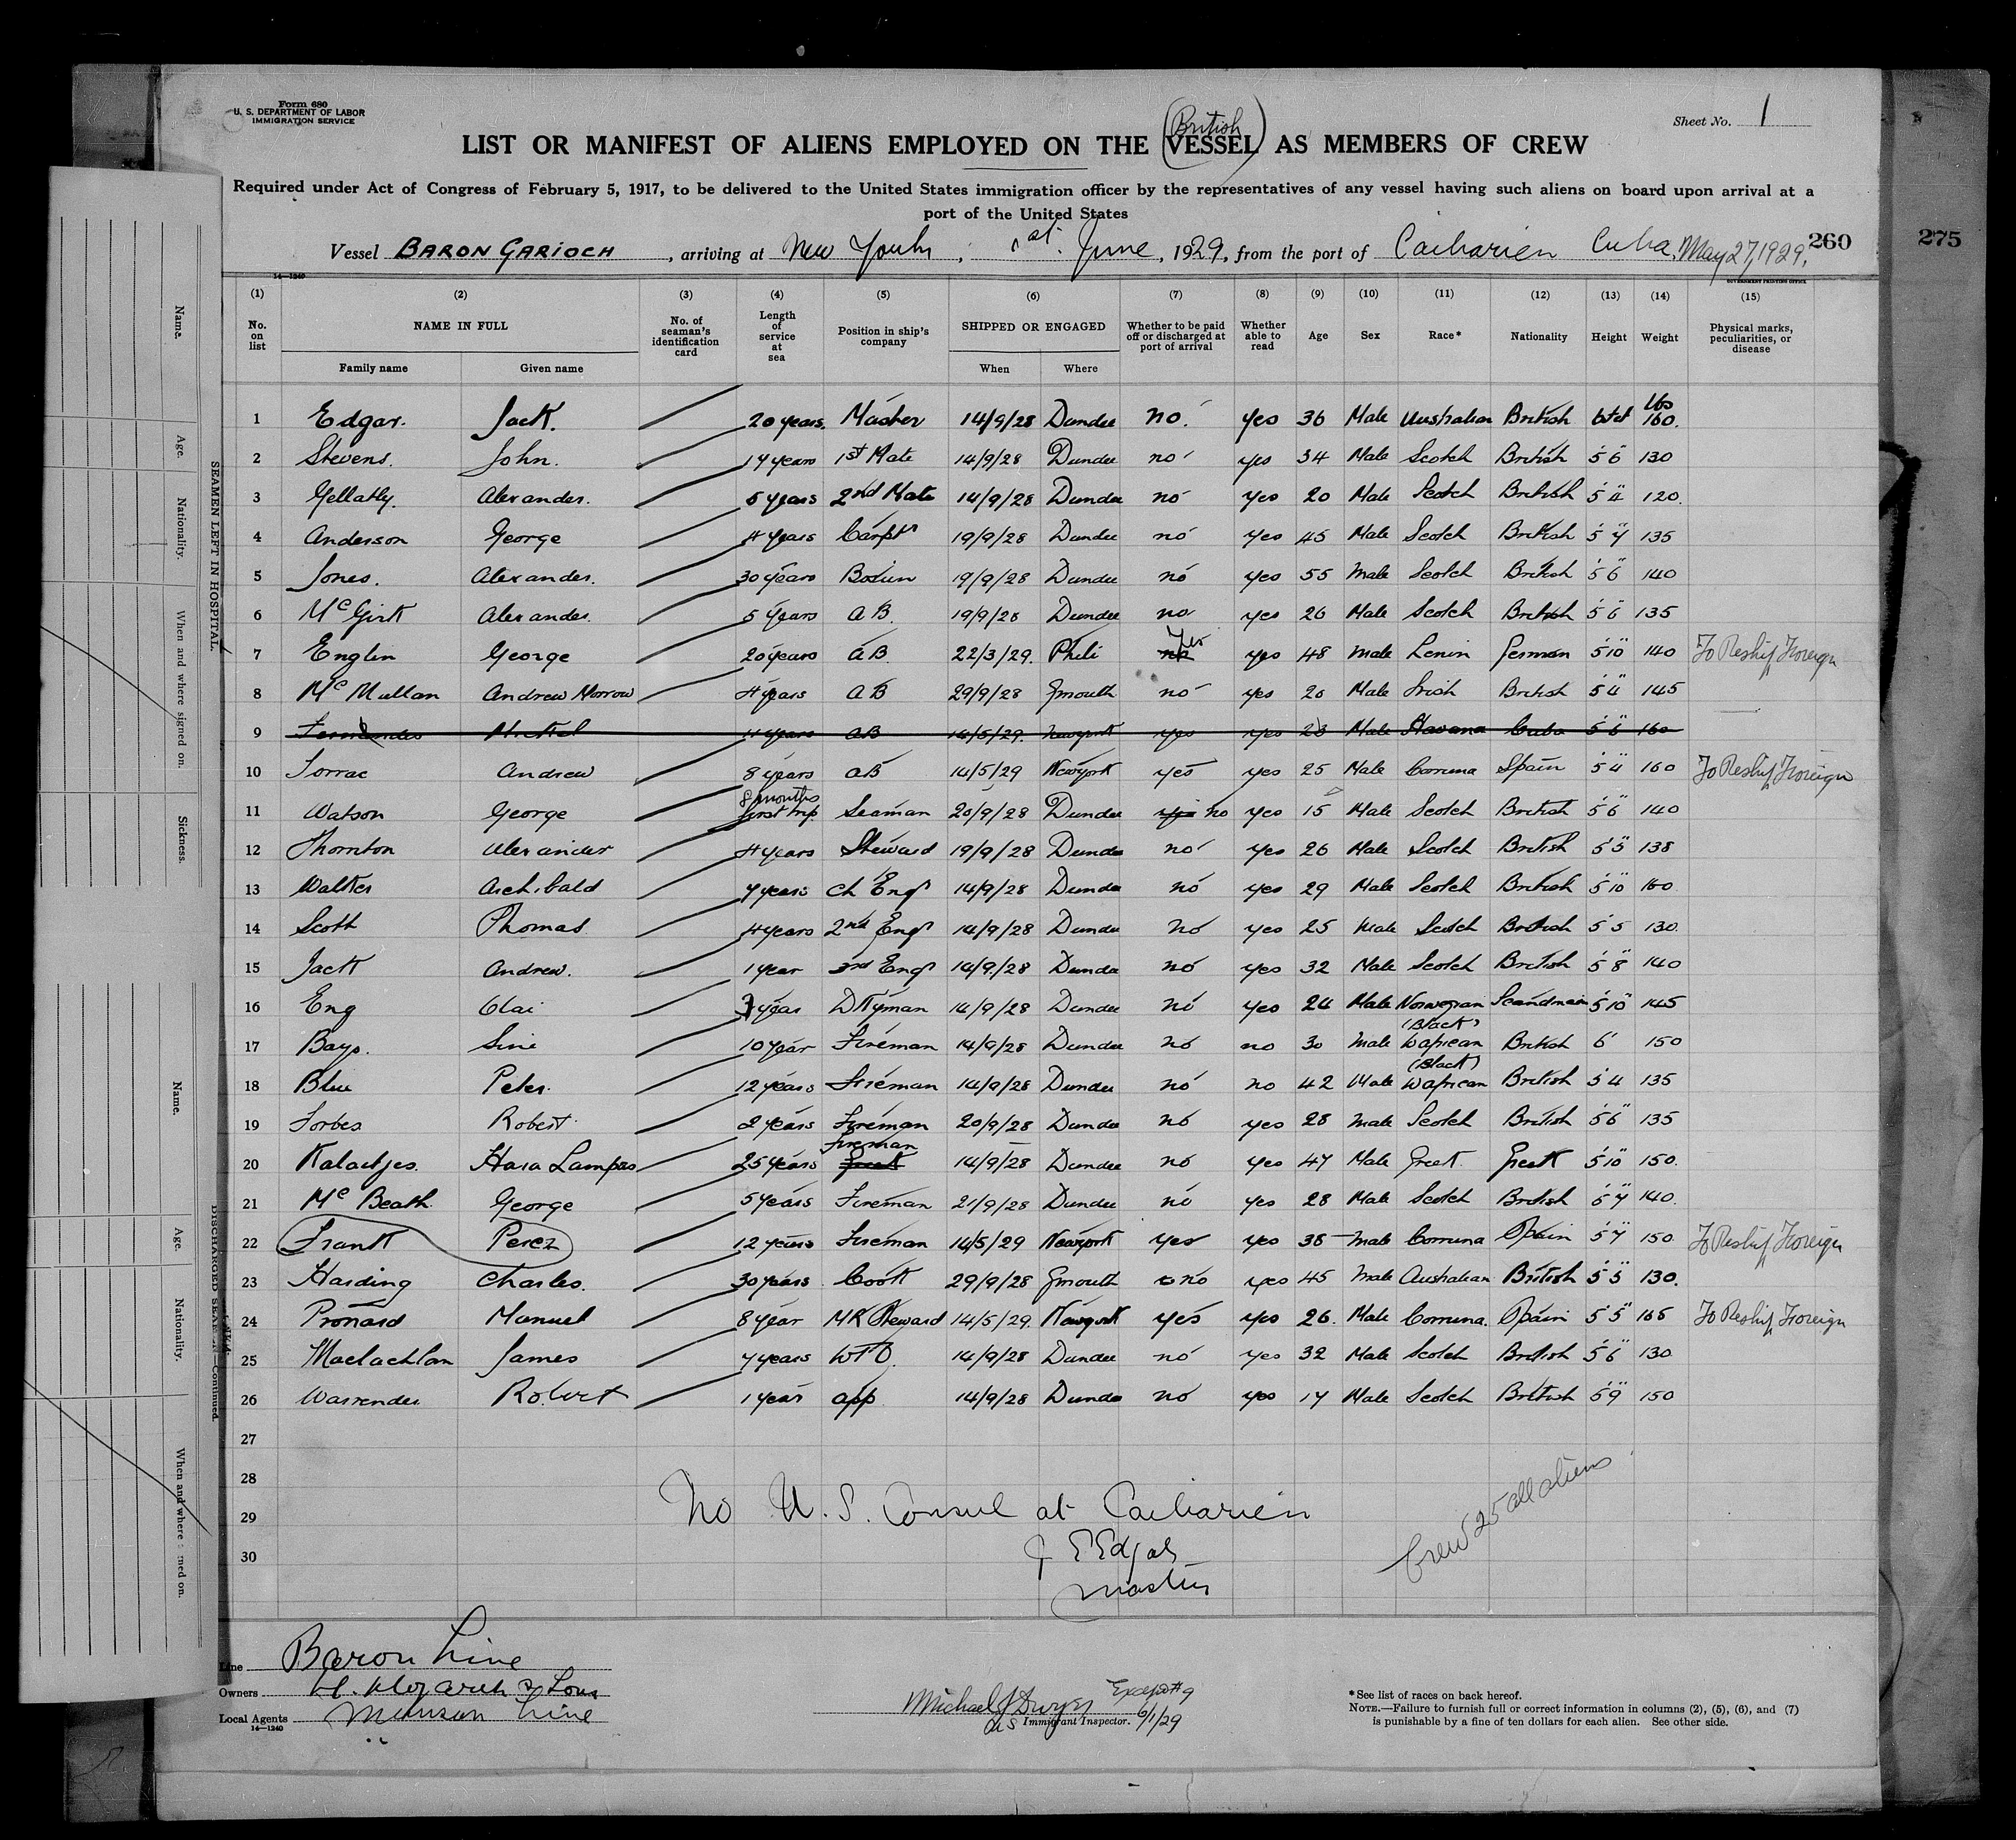 Form 680
U. S. DEPARTMENT OF LABOR
IMMIGRATION SERVICE
Sheet No. 1
(British)
LIST OR MANIFEST OF ALIENS EMPLOYED ON THE VESSEL AS MEMBERS OF CREW
Required under Act of Congress of February 5, 1917, to be delivered to the United States immigration officer by the representatives of any vessel having such aliens on board upon arrival at a
port of the United States
Vessel BARON GARIOCH, arriving at New York, 1st June, 1929, from the port of Caibarien Cuba, May 27, 1929. 260 275
14—1240 GOVERNMENT PRINTING OFFICE
(1) (2) (3) (4) (5) (6) (7) (8) (9) (10) (11) (12) (13) (14) (15)
No. on list NAME IN FULL No. of seaman's identification card Length of service at sea Position in ship's company SHIPPED OR ENGAGED Whether to be paid off or discharged at port of arrival Whether able to read Age Sex Race* Nationality Height Weight Physical marks, peculiarities, or disease
Family name Given name When Where
1 Edgar. Jack. 20 years. Master 14/9/28 Dundee no. yes 36 Male Australian British 6 ft lbs 160.
2 Stevens. John. 14 years 1st Mate 14/9/28 Dundee no yes 34 Male Scotch British 5'6" 130
3 Gellatly. Alexander. 5 years 2nd Mate 14/9/28 Dundee no yes 20 Male Scotch British 5'4" 120.
4 Anderson George 4 years Carpt 19/9/28 Dundee no yes 45 Male Scotch British 5'7" 135
5 Jones. Alexander. 30 years Bosun 19/9/28 Dundee no yes 55 Male Scotch British 5'6" 140
6 McGirk Alexander. 5 years AB. 19/9/28 Dundee no yes 26 Male Scotch British 5'6" 135
7 Englin George 20 years AB. 22/3/29. Phili no Yes yes 48 Male Lenin German 5'10" 140 To Reship Foreign
8 McMullan Andrew Morrow 4 years AB 29/9/28 Gmouth no yes 20 Male Irish British 5'4" 145
9 Fernandes 4 years AB 14/5/29. Newyork yes yes 23 Male Havana Cuba 5'6" 160
10 Torrac Andrew 8 years AB 14/5/29 Newyork yes yes 25 Male Corruna Spain 5'4" 160 To Reship Foreign
11 Watson George 8 months first trip. Seaman 20/9/28 Dundee yes no yes 15 Male Scotch British 5'6" 140
12 Thornton Alexander 4 years Steward 19/9/28 Dundee no yes 26 Male Scotch British 5'5" 138
13 Walker Archibald 7 years Ch Engr 14/9/28 Dundee no yes 29 Male Scotch British 5'10" 160.
14 Scott Thomas. 4 years 2nd Engr 14/9/28 Dundee no yes 25 Male Scotch British 5'5 130.
15 Jack Andrew. 1 year 3rd Engr 14/9/28 Dundee no yes 32 Male Scotch British 5'8" 140
16 Eng Olai year Dkyman 14/9/28 Dundee no yes 24 Male Norwegian 5'10" 145
17 Bayo. Sini 10 year Fireman 14/9/28 Dundee no no 30 Male (Black) W African British 6' 150
18 Blue Peter. 12 years Fireman 14/9/28 Dundee no no 42 Male (Black) W African British 5'4" 135
19 Forbes Robert. 2 years Fireman 20/9/28 Dundee no yes 28 Male Scotch British 5'6" 135
20 Kalaitjes. Hara Lampas 25 years Greek Fireman 14/9/28 Dundee no yes 47 Male Greek. Greek 5'10" 150.
21 McBeath. George 5 years Fireman 21/9/28 Dundee no yes 28 Male Scotch British 5'7" 140.
22 Frank Perez 12 years Fireman 14/5/29 Newyork yes yes 38 Male Corruna Spain 5'7" 150 To Reship Foreign
23 Harding Charles. 30 years Cook 29/9/28 Gmouth no yes 45 Male Australian British 5'5" 130.
24 Pronard Manuel 8 year MR Steward 14/5/29. Newyork yes yes 26. Male Corruna. Spain 5'5" 165 To Reship Foreign
25 Maclachlan James 7 years WTO. 14/9/28 Dundee no yes 32 Male Scotch British 5'6" 130
26 Warrender Robert 1 year app. 14/9/28 Dundee no yes 17 Male Scotch British 5'9" 150
27
28
29
30
No U. S. Consul at Caibarien
J E Edgar
Master
Crew 25 all aliens
Line Baron Line
Owners H. Hogarth & Sons
Local Agents Munson Line
14—1240
Michael J Dwyer Except #9
US Immigrant Inspector. 6/1/29
*See list of races on back hereof.
NOTE.—Failure to furnish full or correct information in columns (2), (5), (6), and (7)
is punishable by a fine of ten dollars for each alien. See other side.
SEAMEN LEFT IN HOSPITAL.
Name. Age. Nationality. When and where signed on. Sickness.
DISCHARGED SEAMEN—Continued.
Name. Age. Nationality. When and where signed on.